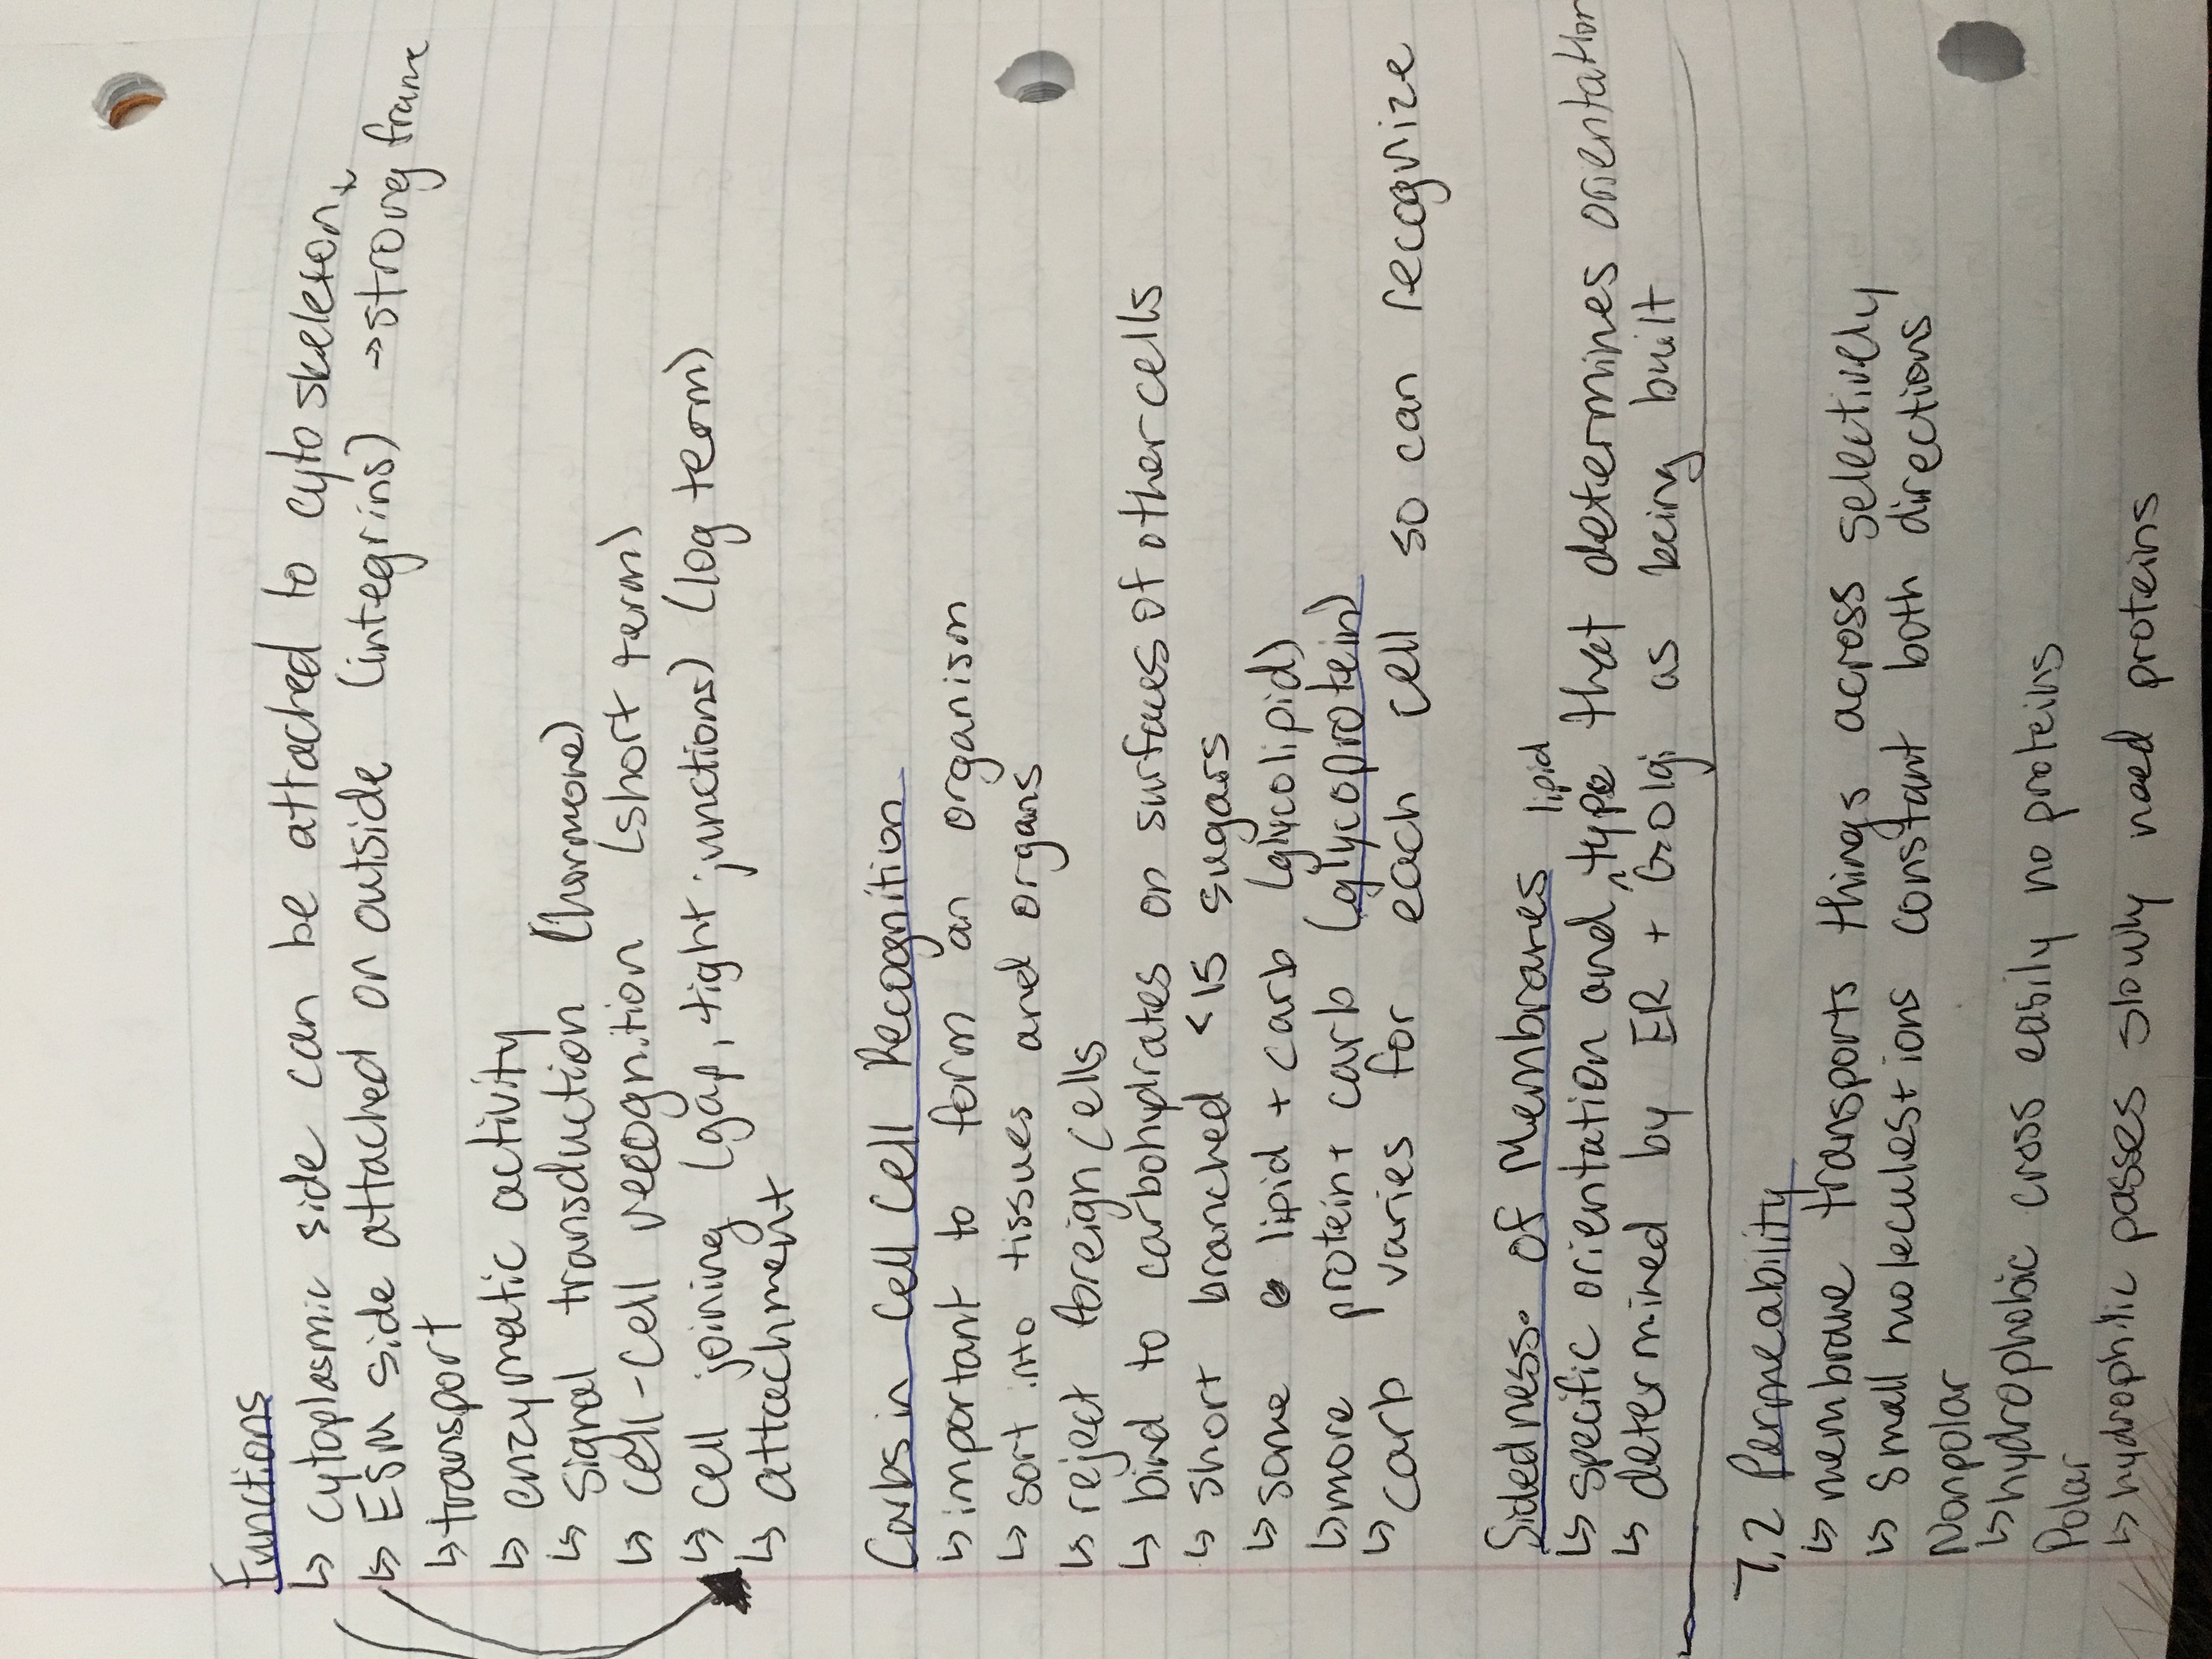 Functions
↳ cytoplasmic side can be attached to cytoskeleton
↳ ESM side attached on outside (integrins) → strong frame
↳ transport
↳ enzymatic activity
↳ signal transduction (hormone)
↳ cell-cell recognition (short term)
↳ cell joining (gap, tight junctions) (log term)
↳ attachment
Carbs in Cell Cell Recognition
↳ important to form an organism
↳ sort into tissues and organs
↳ reject foreign cells
↳ bind to carbohydrates on surfaces of other cells
↳ short branched <15 sugars
↳ some lipid + carb (glycolipid)
↳ more protein + carb (glycoprotein)
↳ carb varies for each cell so can recognize
Sidedness of Membranes
↳ specific orientation and lipid type that determines orientation
↳ determined by ER + Golgi as being built
7.2 Permeability
↳ membrane transports things across selectively
↳ small molecules + ions constant both directions
Nonpolar
↳ hydrophobic cross easily no proteins
Polar
↳ hydrophilic passes slowly need proteins